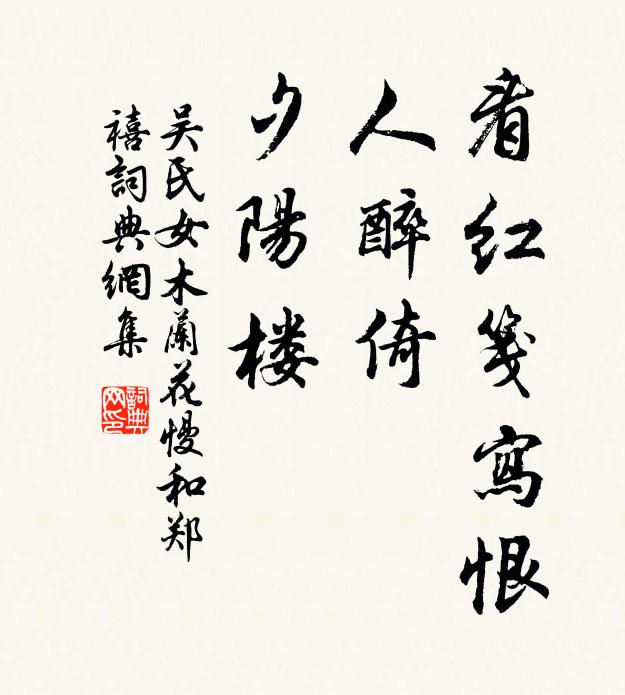 看红笺寫恨
人醉倚
夕陽楼
吴氏女木蘭花慢和郑
禧詞典網集
詞典网印